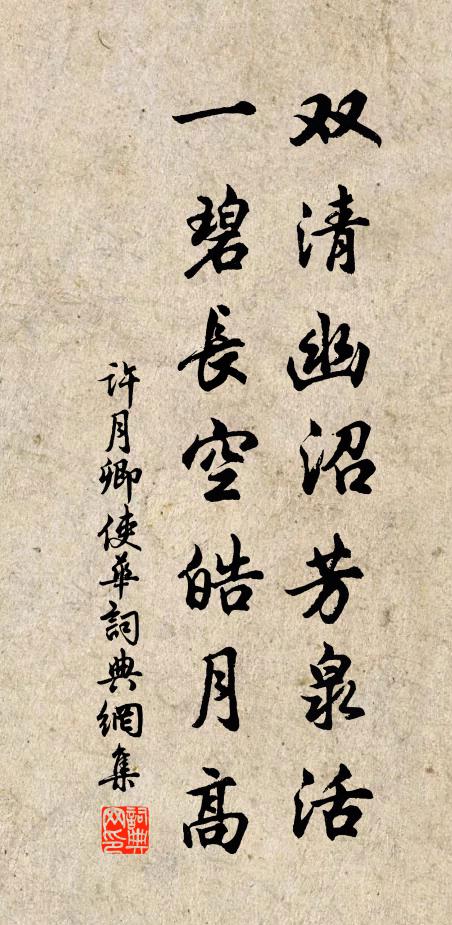 双清幽沼芳泉活
一碧長空皓月高
許月卿使華詞典網集
詞典
网印